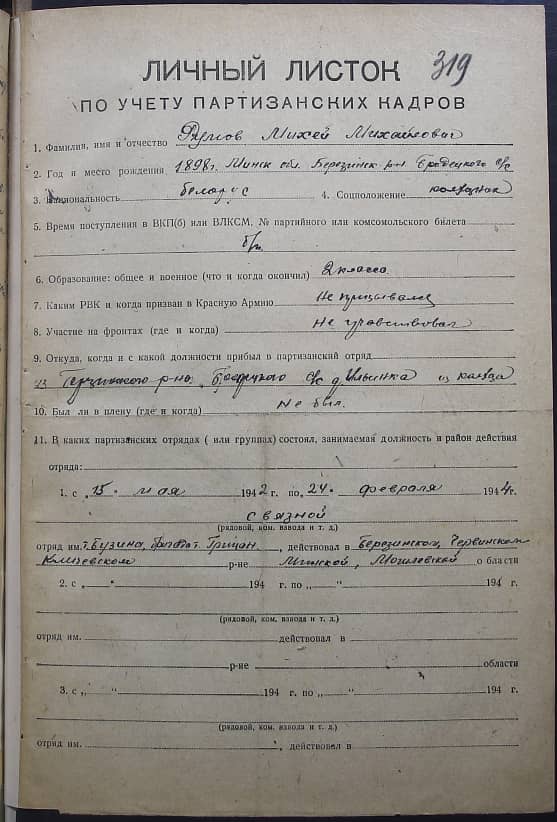 ЛИЧНЫЙ ЛИСТОК 319
ПО УЧЕТУ ПАРТИЗАНСКИХ КАДРОВ
1. Фамилия, имя и отчество Михей Михайлович
2. Год и место рождения 1898г. Минск обл. Березинск р-н с/с
3. Национальность белорус 4. Соцположение колхозник
5. Время поступления в ВКП(б) или ВЛКСМ, № партийного или комсомольского билета
б/п
6. Образование: общее и военное (что и когда окончил) 2 класса
7. Каким РВК и когда призван в Красную Армию Не призывался
8. Участие на фронтах (где и когда) Не участвовал
9. Откуда, когда и с какой должности прибыл в партизанский отряд
из р-на, с/с д. Ильинка из колхоза
10. Был ли в плену (где и когда) Не был.
11. В каких партизанских отрядах ( или группах) состоял, занимаемая должность и район действия
отряда:
1. с „15" мая 1942 г. по „24" февраля 1944 г.
связной
(рядовой, ком. взвода и т. д.)
отряд им. т. Бузина, , действовал в Березинском, Червинском
Кличевском р-не Минской, Могилевской области
2. с „ " 194 г. по „ " 194 г.
(рядовой, ком. взвода и т. д.)
отряд им. действовал в
р-не области
3. с „ " 194 г. по „ " 194 г.
(рядовой, ком. взвода и т. д.)
отряд им. , действовал в